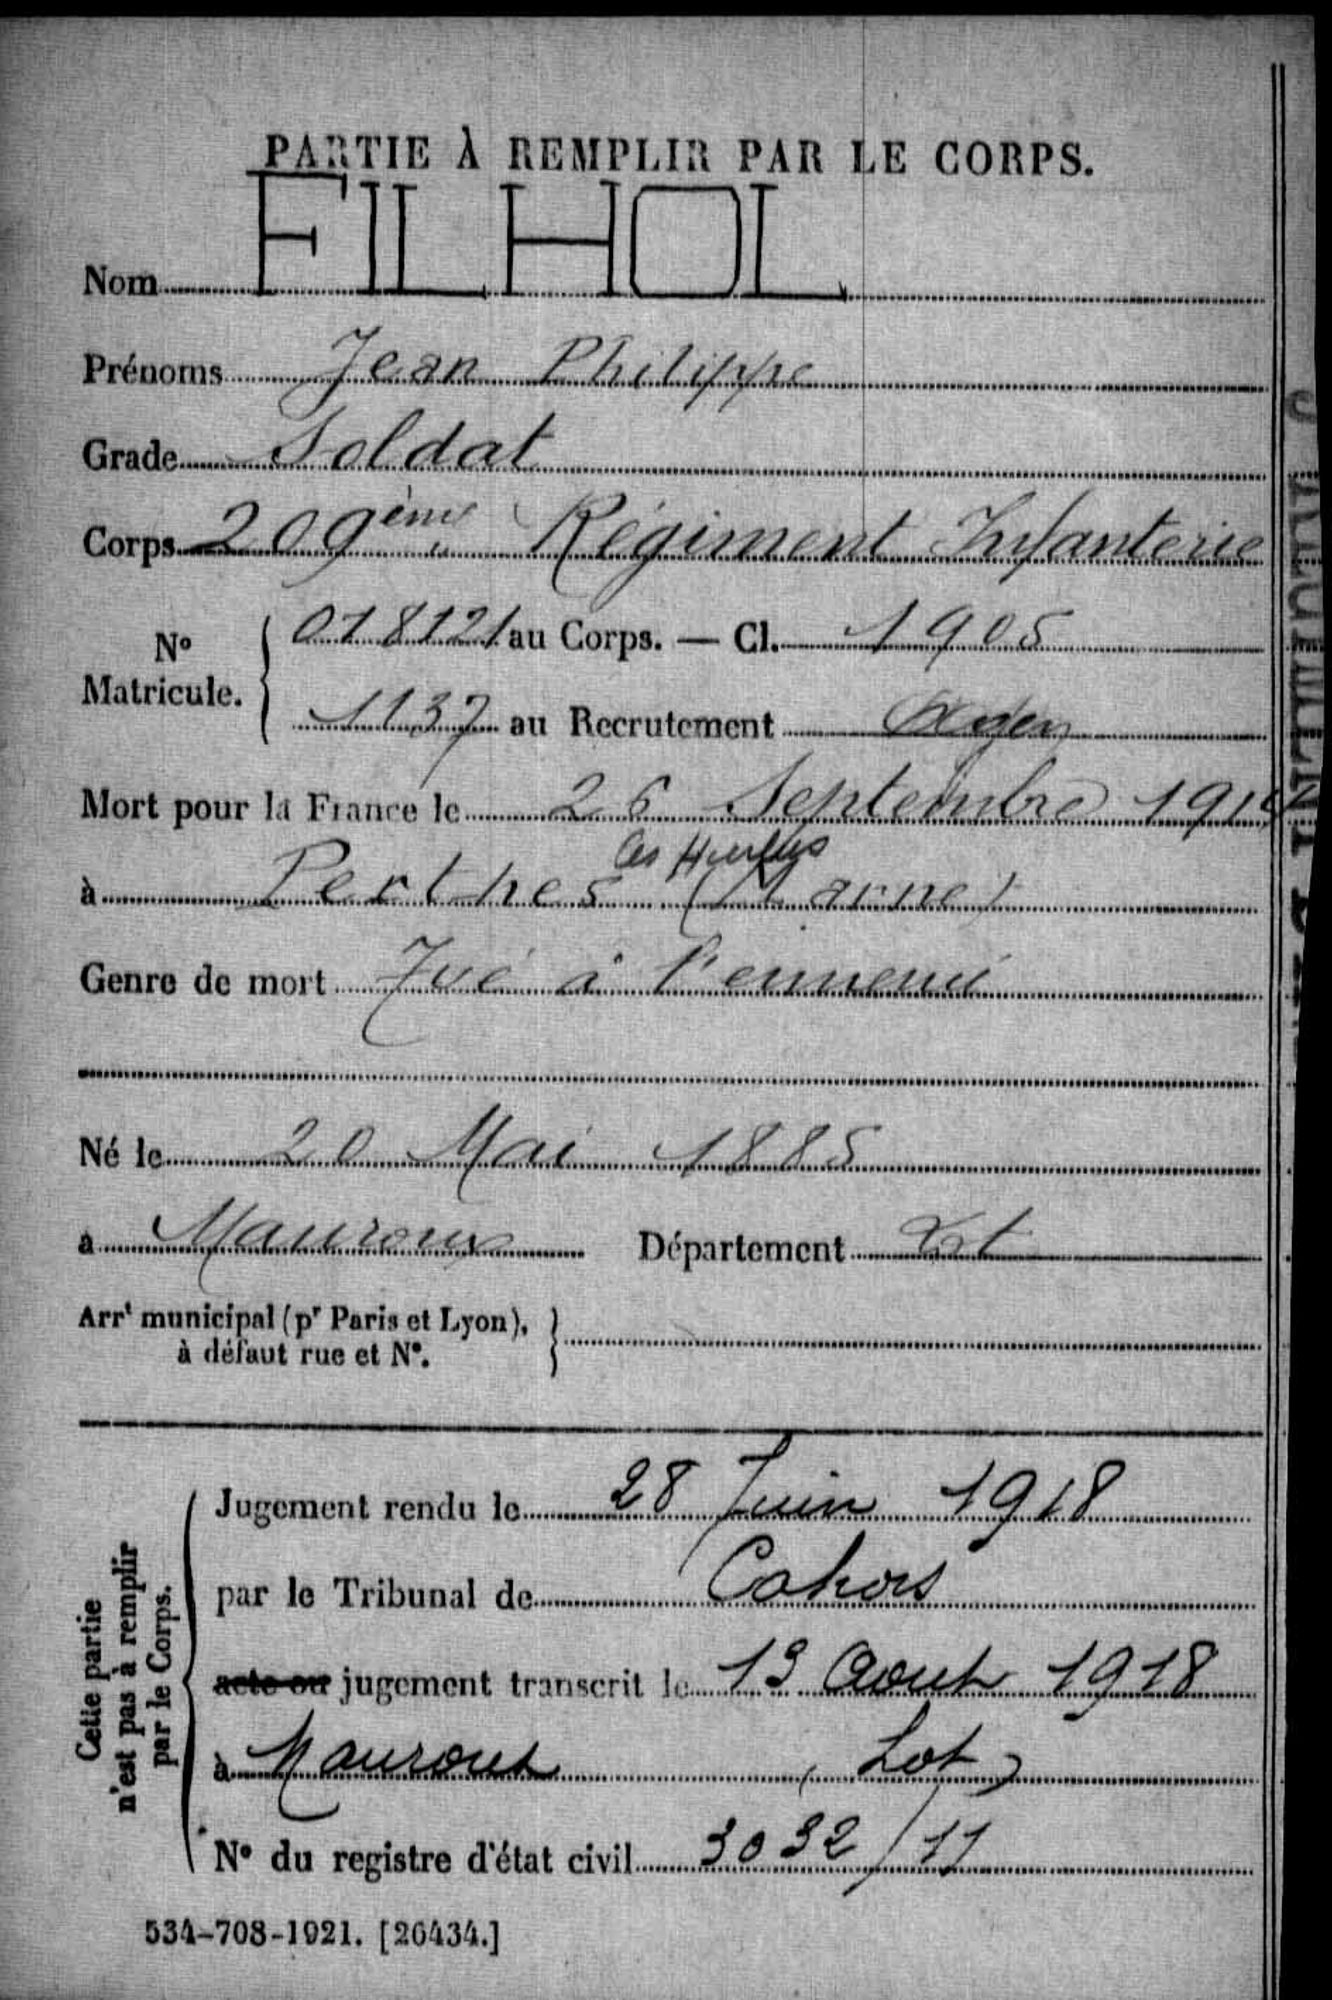 PARTIE À REMPLIR PAR LE CORPS.
Nom FILHOL
Prénoms Jean Philippe
Grade Soldat
Corps 209ème Régiment Infanterie
No Matricule. { 018121 au Corps. — Cl. 1905
1137 au Recrutement Agen
Mort pour la France le 26 Septembre 191
à Perthes les Hurlus (Marne)
Genre de mort Tué à l'ennemi
Né le 20 Mai 1885
à Mauroux Département Lot
Arrt municipal (pr Paris et Lyon),
à défaut rue et No.
Cette partie
n'est pas à remplir
par le Corps.
Jugement rendu le 28 Juin 1918
par le Tribunal de Cahors
acte ou jugement transcrit le 13 Aout 1918
à Mauroux (Lot)
No du registre d'état civil 3032/11
534-708-1921. [26434.]